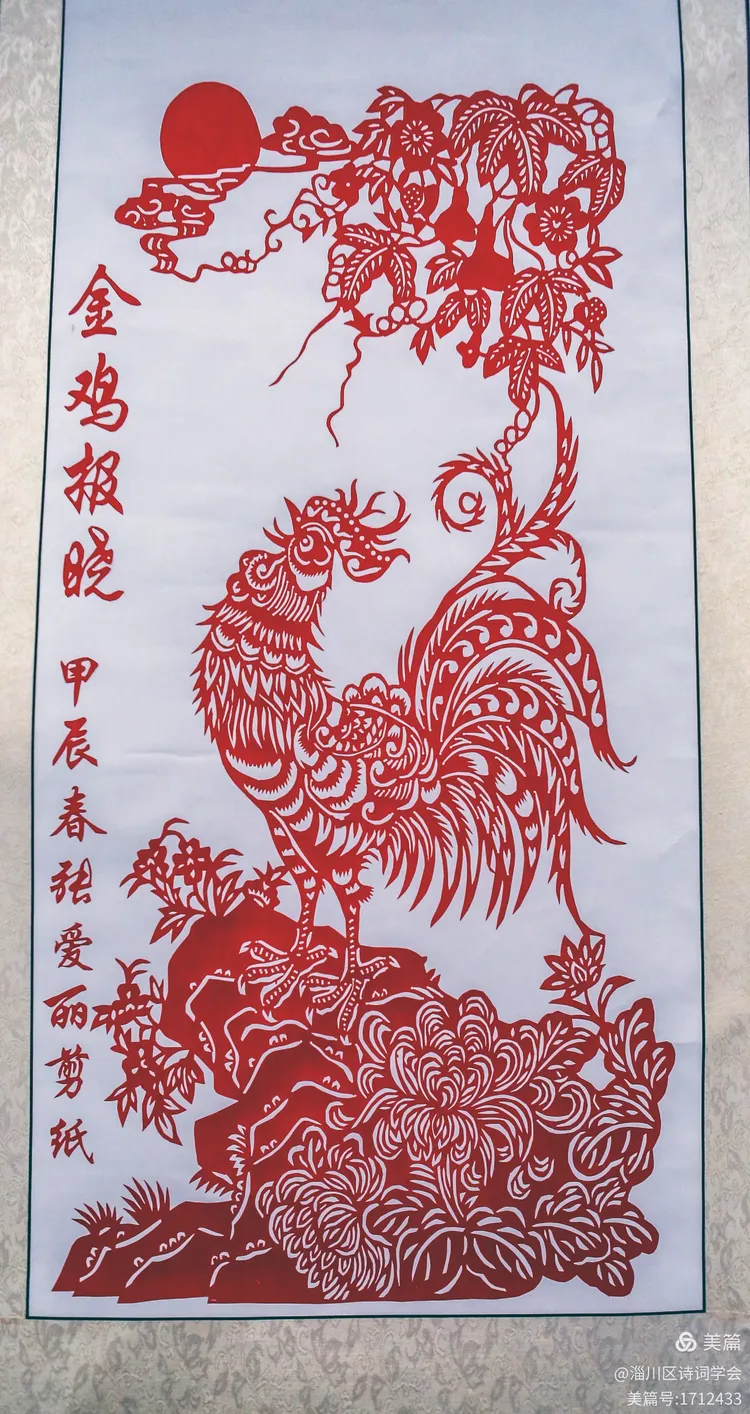 金鸡报晓
甲辰春张爱丽剪纸
美篇
@淄川区诗词学会
美篇号:1712433